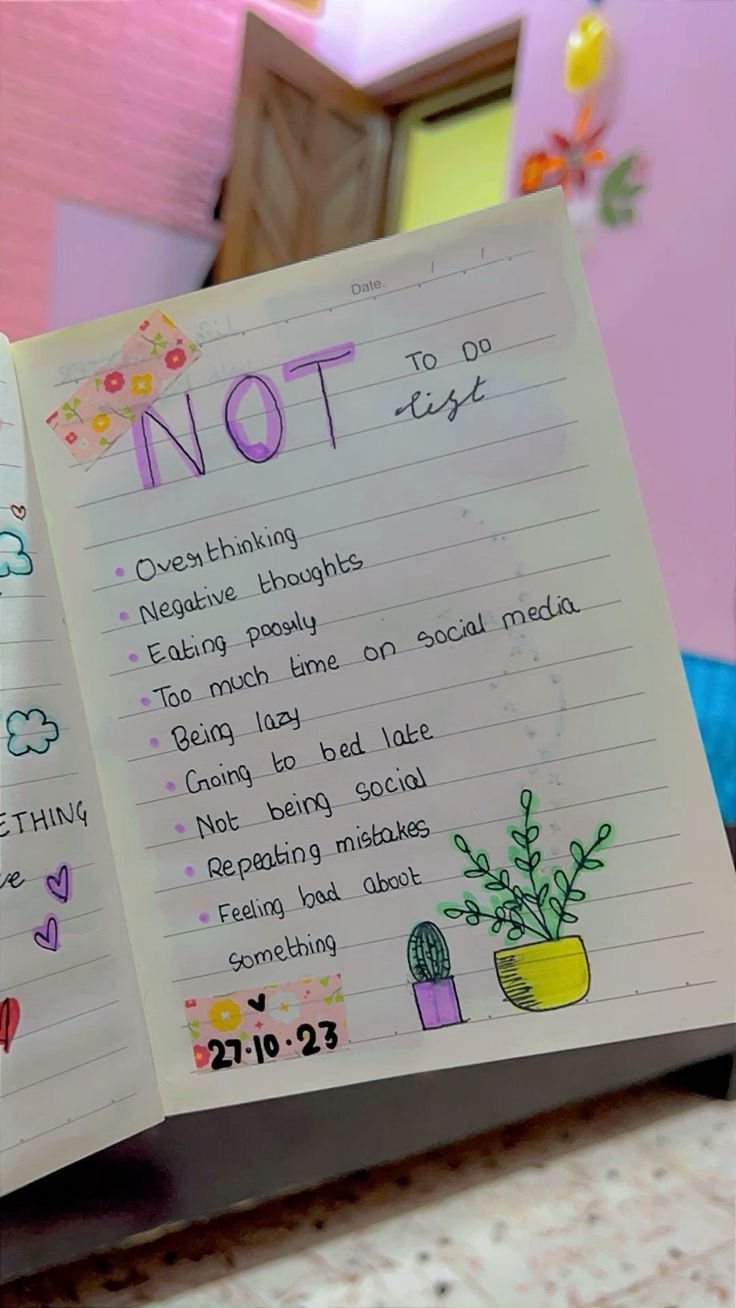 Date. / /
NOT TO DO
list
Overthinking
Negative thoughts
Eating poorly
Too much time on social media
Being lazy
Going to bed late
Not being social
Repeating mistakes
Feeling bad about
something
27·10·23
ETHING